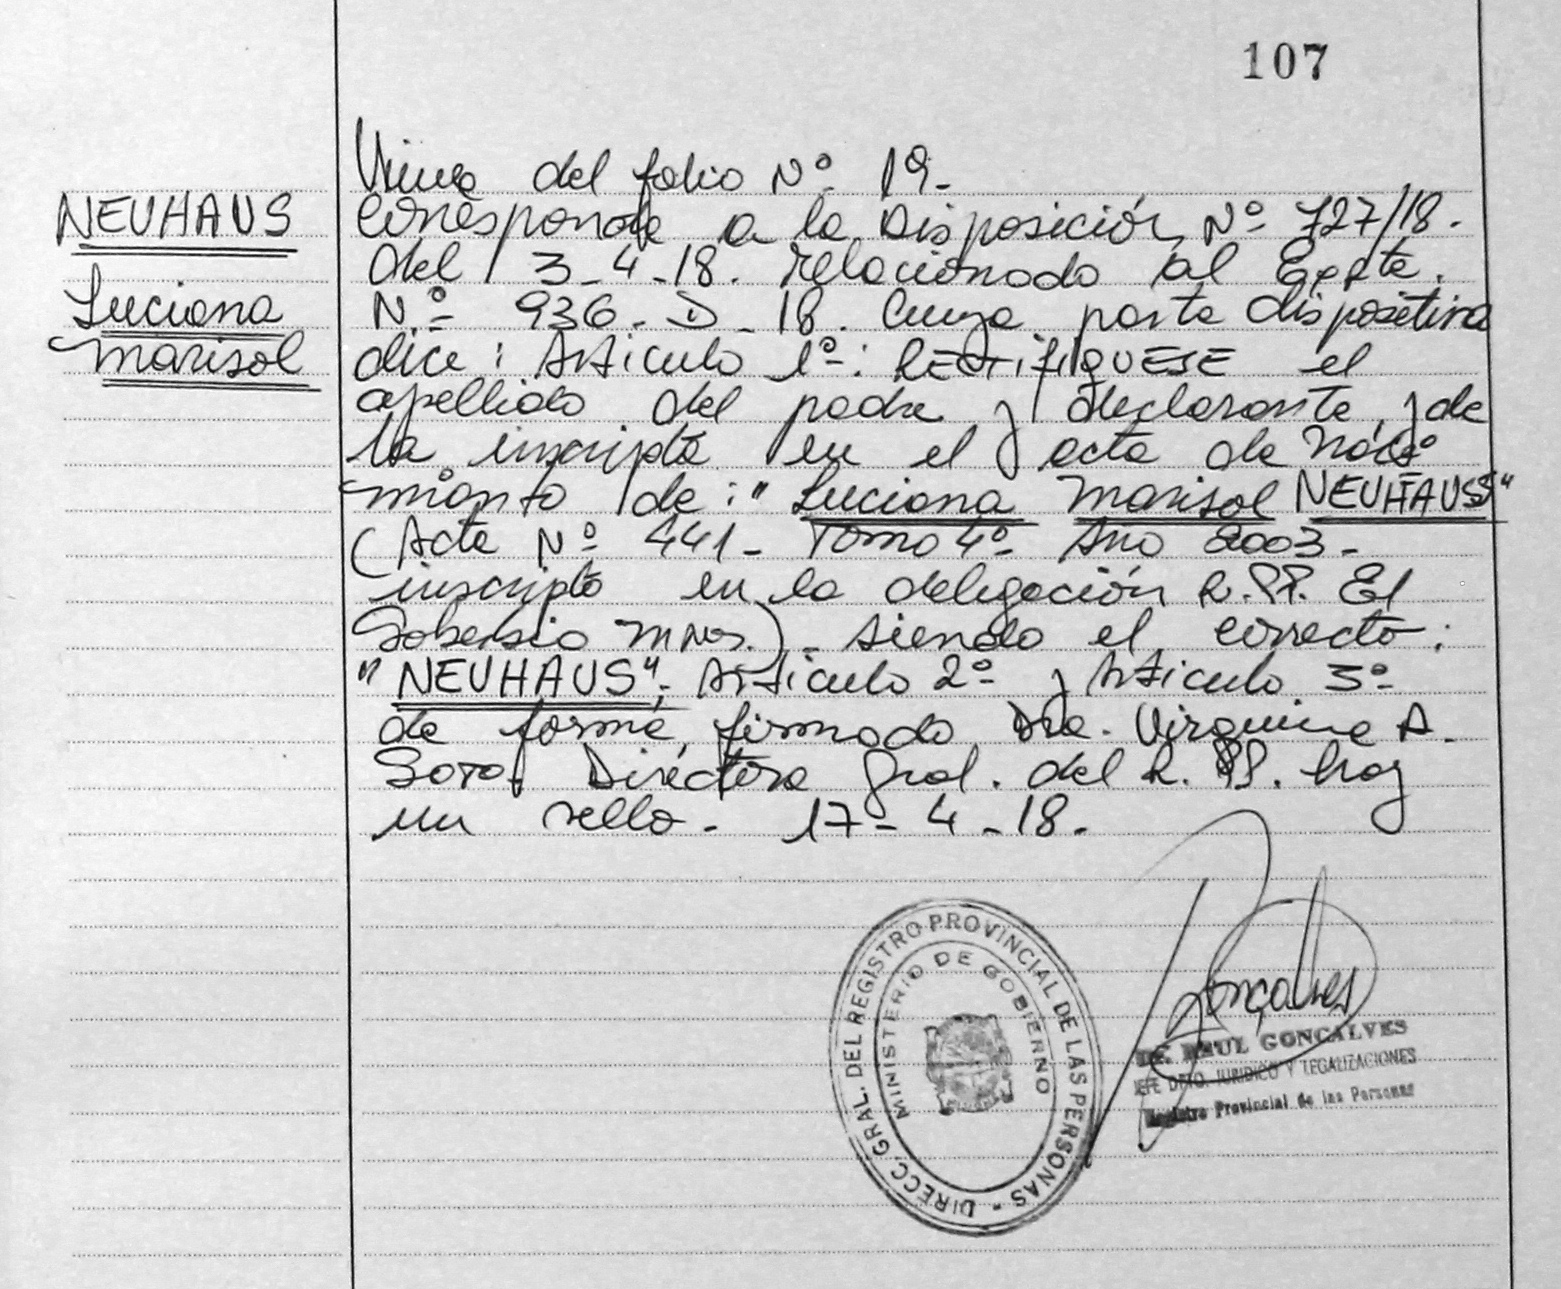 107
Viene del folio Nº 19.
NEUHAUS
Luciana
Marisol
Corresponde a la Disposición Nº 727/18.
del 3-4-18. relacionado al Expte.
Nº 936-D-18. Cuya parte dispositiva
dice: Articulo 1º: RECTIFIQUESE el
apellido del padre y declarante y de
la inscripta en el acta de naci
miento de: "Luciana Marisol NEUHAUSS"
(Acta Nº 441- Tomo 4º Año 2003-
inscripta en la delegación R.PP. El
Soberbio Mnes.)- siendo el correcto:
"NEUHAUS"- Articulo 2º y Articulo 3º
de forma, firmado Dra. A.
Soto Directora Gral. del R.PP. hay
un sello. 17-4-18.
DIRECC. GRAL. DEL REGISTRO PROVINCIAL DE LAS PERSONAS -
MINISTERIO DE GOBIERNO
Gonçalves
RAUL GONCALVES
JEFE DPTO. JURIDICO Y LEGALIZACIONES
Registro Provincial de las Personas